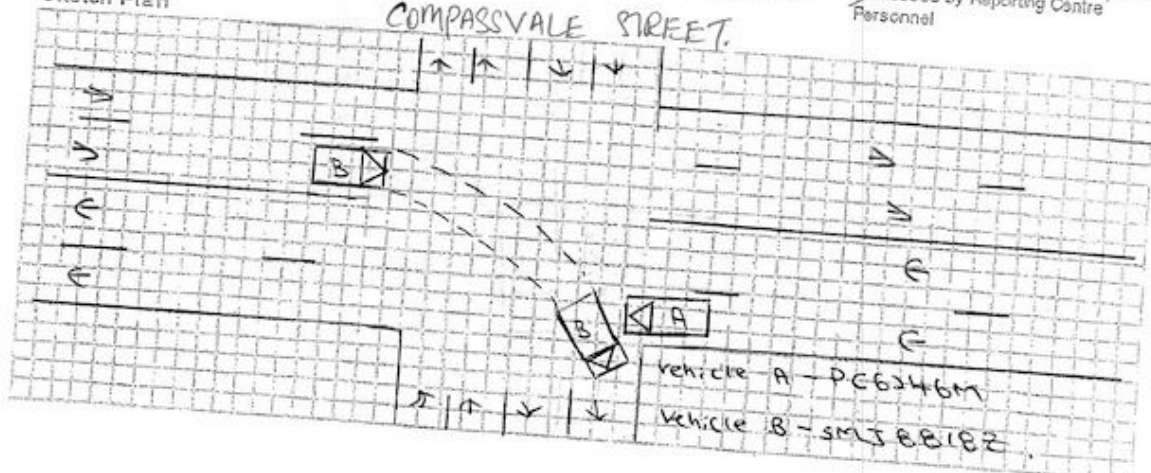 Sketch Plan
by Reporting Centre
Personnel
COMPASSVALE STREET.
B
B
A
Vehicle A -
Vehicle B -